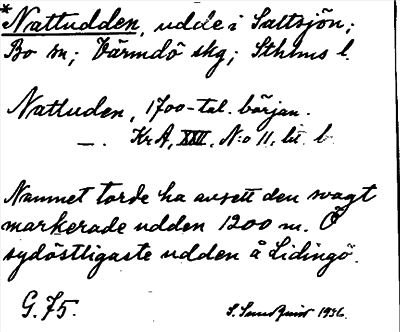 *Nattudden, udde i Saltsjön;
Bo sn; Värmdö skg; Sthlms l.
Nattuden, 1700-tal. början.
—. Kr A, XXII, N:o 11, lit. b
Namnet torde ha avsett den svagt
markerade udden 1200 m. Ö
sydöstligaste udden å Lidingö.
G.75. S. 1936.